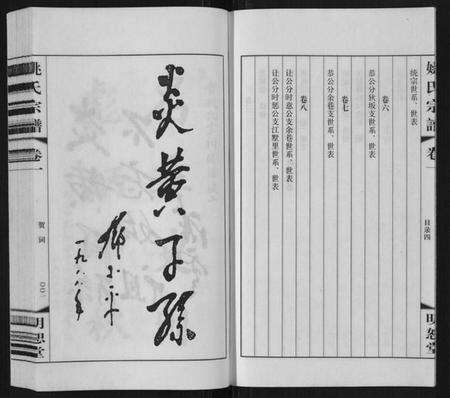 姚氏宗譜
卷一
目录四
明恕堂
统宗世系、世表
卷六
恭公分
坂支世系、世表
卷七
恭公分余巷支世系、世表
卷八
让公分时
公支余巷世系、世表
让公分时
公支江墅里世系、世表
炎黄子孙
邓小平
一九八八年
姚氏宗譜
卷一
贺词
明恕堂